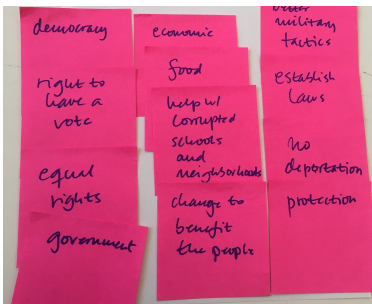 democracy
right to
have a
vote
equal
rights
government
economic
food
help w/
corrupted
schools
and
neighborhoods
change to
benefit
the people
better
military
tactics
establish
laws
no
deportation
protection